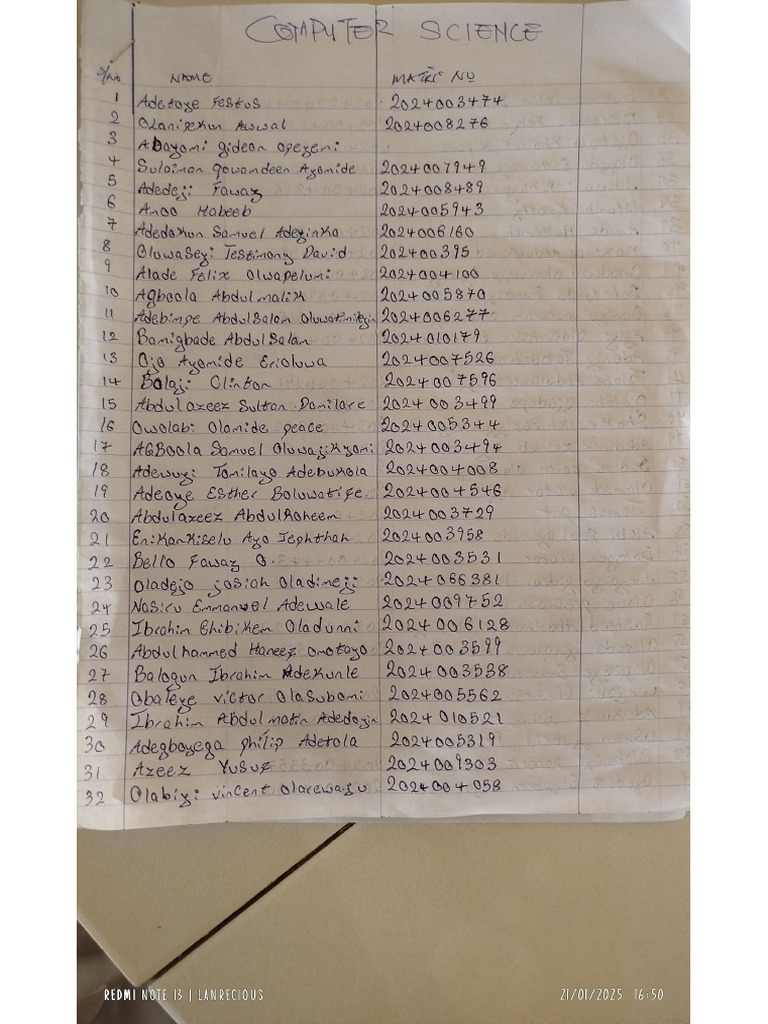 COMPUTER SCIENCE
S/no NAME MATRIC NO
1 Adetoye Festus 2024003474
2 Olanipekun Auwal 2024008276
3 Abayomi gideon opeyemi
4 Sulaiman Qowamdeen Ayomide 2024007949
5 Adedeji Fawaz 2024008489
6 Anoo Habeeb 2024005943
7 Adedokun Samuel Adeyinka 2024006160
8 Oluwaseyi Testimony David 202400395
9 Alade Felix Olwapelumi 2024004100
10 Agboola Abdulmalik 2024005870
11 Adebimpe AbdulSalam 2024006277
12 Bamigbade AbdulSalam 2024010179
13 Ojo Ayomide Erioluwa 2024007526
14 Bolaji Clinton 2024007596
15 Abdulazeez Sultan Damilare 2024003499
16 Owolabi Olamide peace 2024005344
17 AGBoola Samuel Oluwajikyomi 2024003494
18 Adewuyi Tomilayo Adebukola 2024004008
19 Adeoye Esther Boluwatife 2024004546
20 Abdulazeez AbdulRaheem 2024003729
21 Enikankiselu Ayo Jephthah 2024003958
22 Bello Fawaz O. 2024003531
23 Oladejo josiah Oladimeji 2024066381
24 Nasiru Emmanuel Adewale 2024009752
25 Ibrahim Ehibikem Oladunni 2024006128
26 Abdulhammed Haneef omotayo 2024003599
27 Balogun Ibrahim Adekunle 2024003538
28 Obaleye victor Olasubomi 2024005562
29 Ibrahim Abdulmatin Adedoyin 2024010521
30 Adegboyega philip Adetola 2024005319
31 Azeez Yusuf 2024009303
32 Olabiyi vincent Olarewaju 2024004058
REDMI NOTE 13 | LANRECIOUS 21/01/2025 16:50